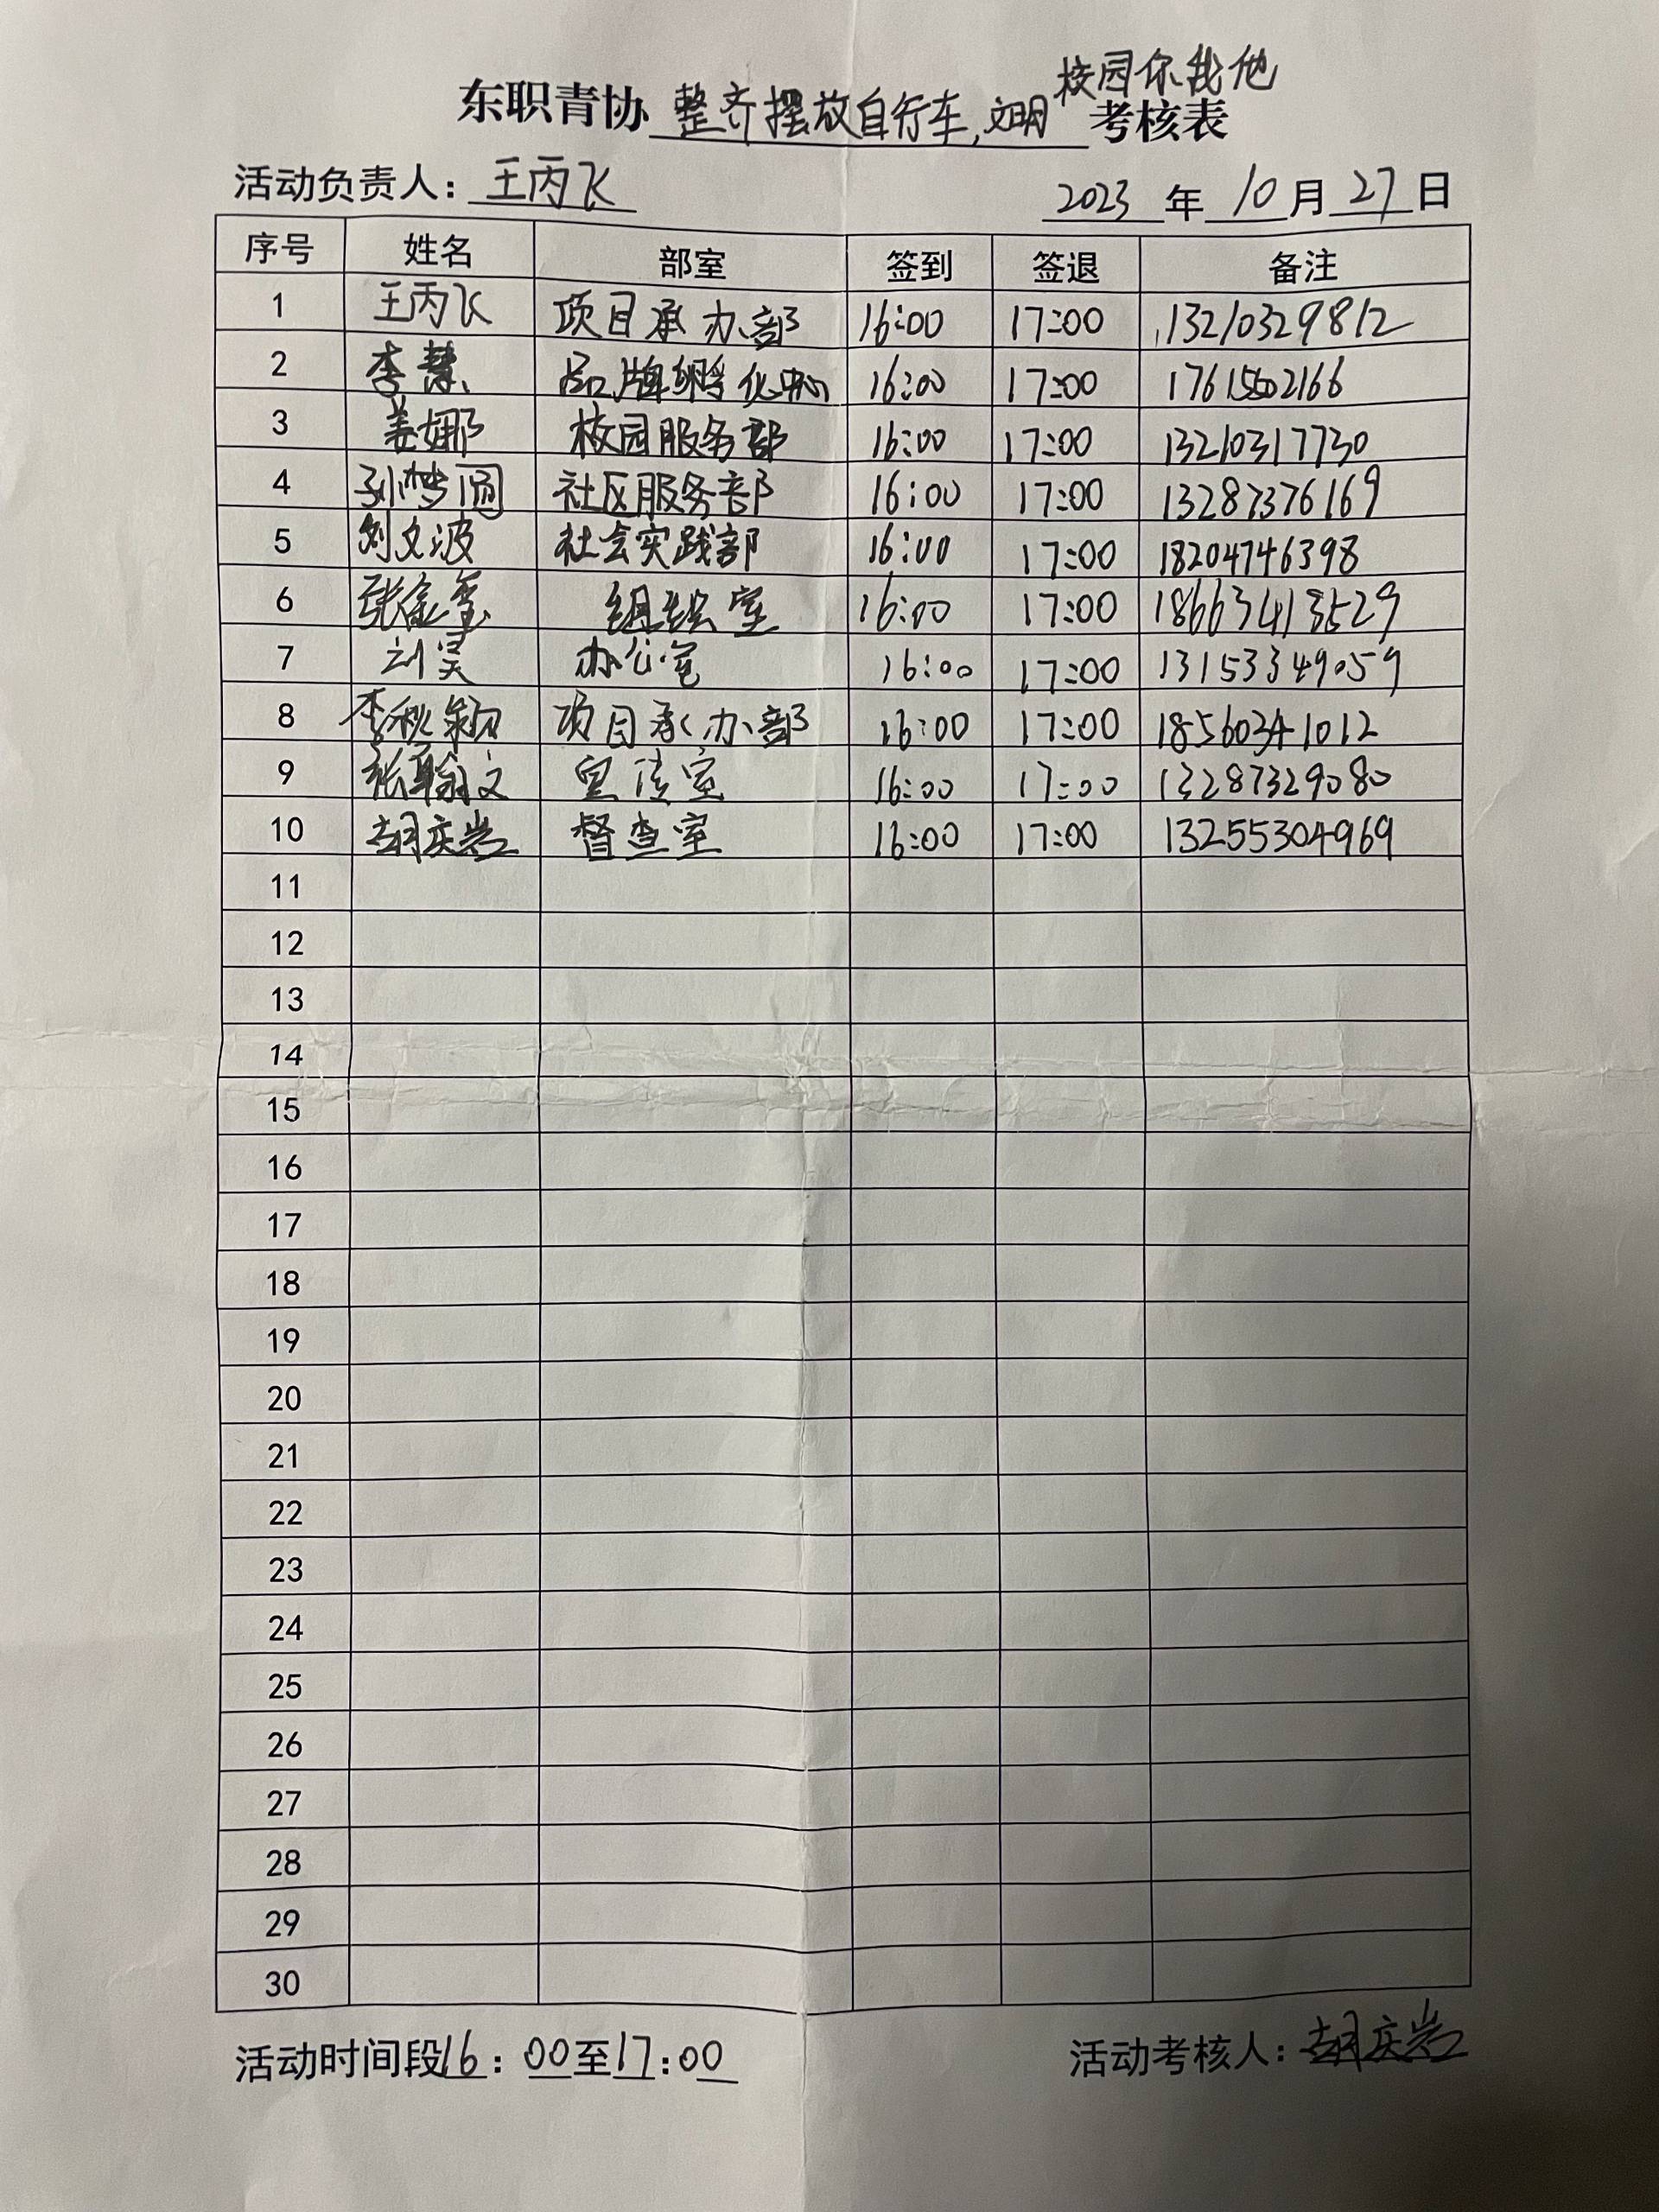 校园你我他
东职青协 整齐摆放自行车,文明 考核表
活动负责人: 王丙飞 2023年10月27日
序号 姓名 部室 签到 签退 备注
1 王丙飞 项目承办部 16:00 17:00 13210329812
2 李慧 品牌孵化中心 16:00 17:00
3 姜娜 校园服务部 16:00 17:00 13210317730
4 孙梦圆 社区服务部 16:00 17:00 13287376169
5 刘文波 社会实践部 16:00 17:00 18204746398
6 张金玺 组织室 16:00 17:00
7 刘昊 办公室 16:00 17:00 13153349059
8 李秋颖 项目承办部 16:00 17:00 18560341012
9 张翰文 宣传室 16:00 17:00 13287329080
10 胡庆岩 督查室 16:00 17:00 13255304969
11
12
13
14
15
16
17
18
19
20
21
22
23
24
25
26
27
28
29
30
活动时间段16:00至17:00 活动考核人: 胡庆岩